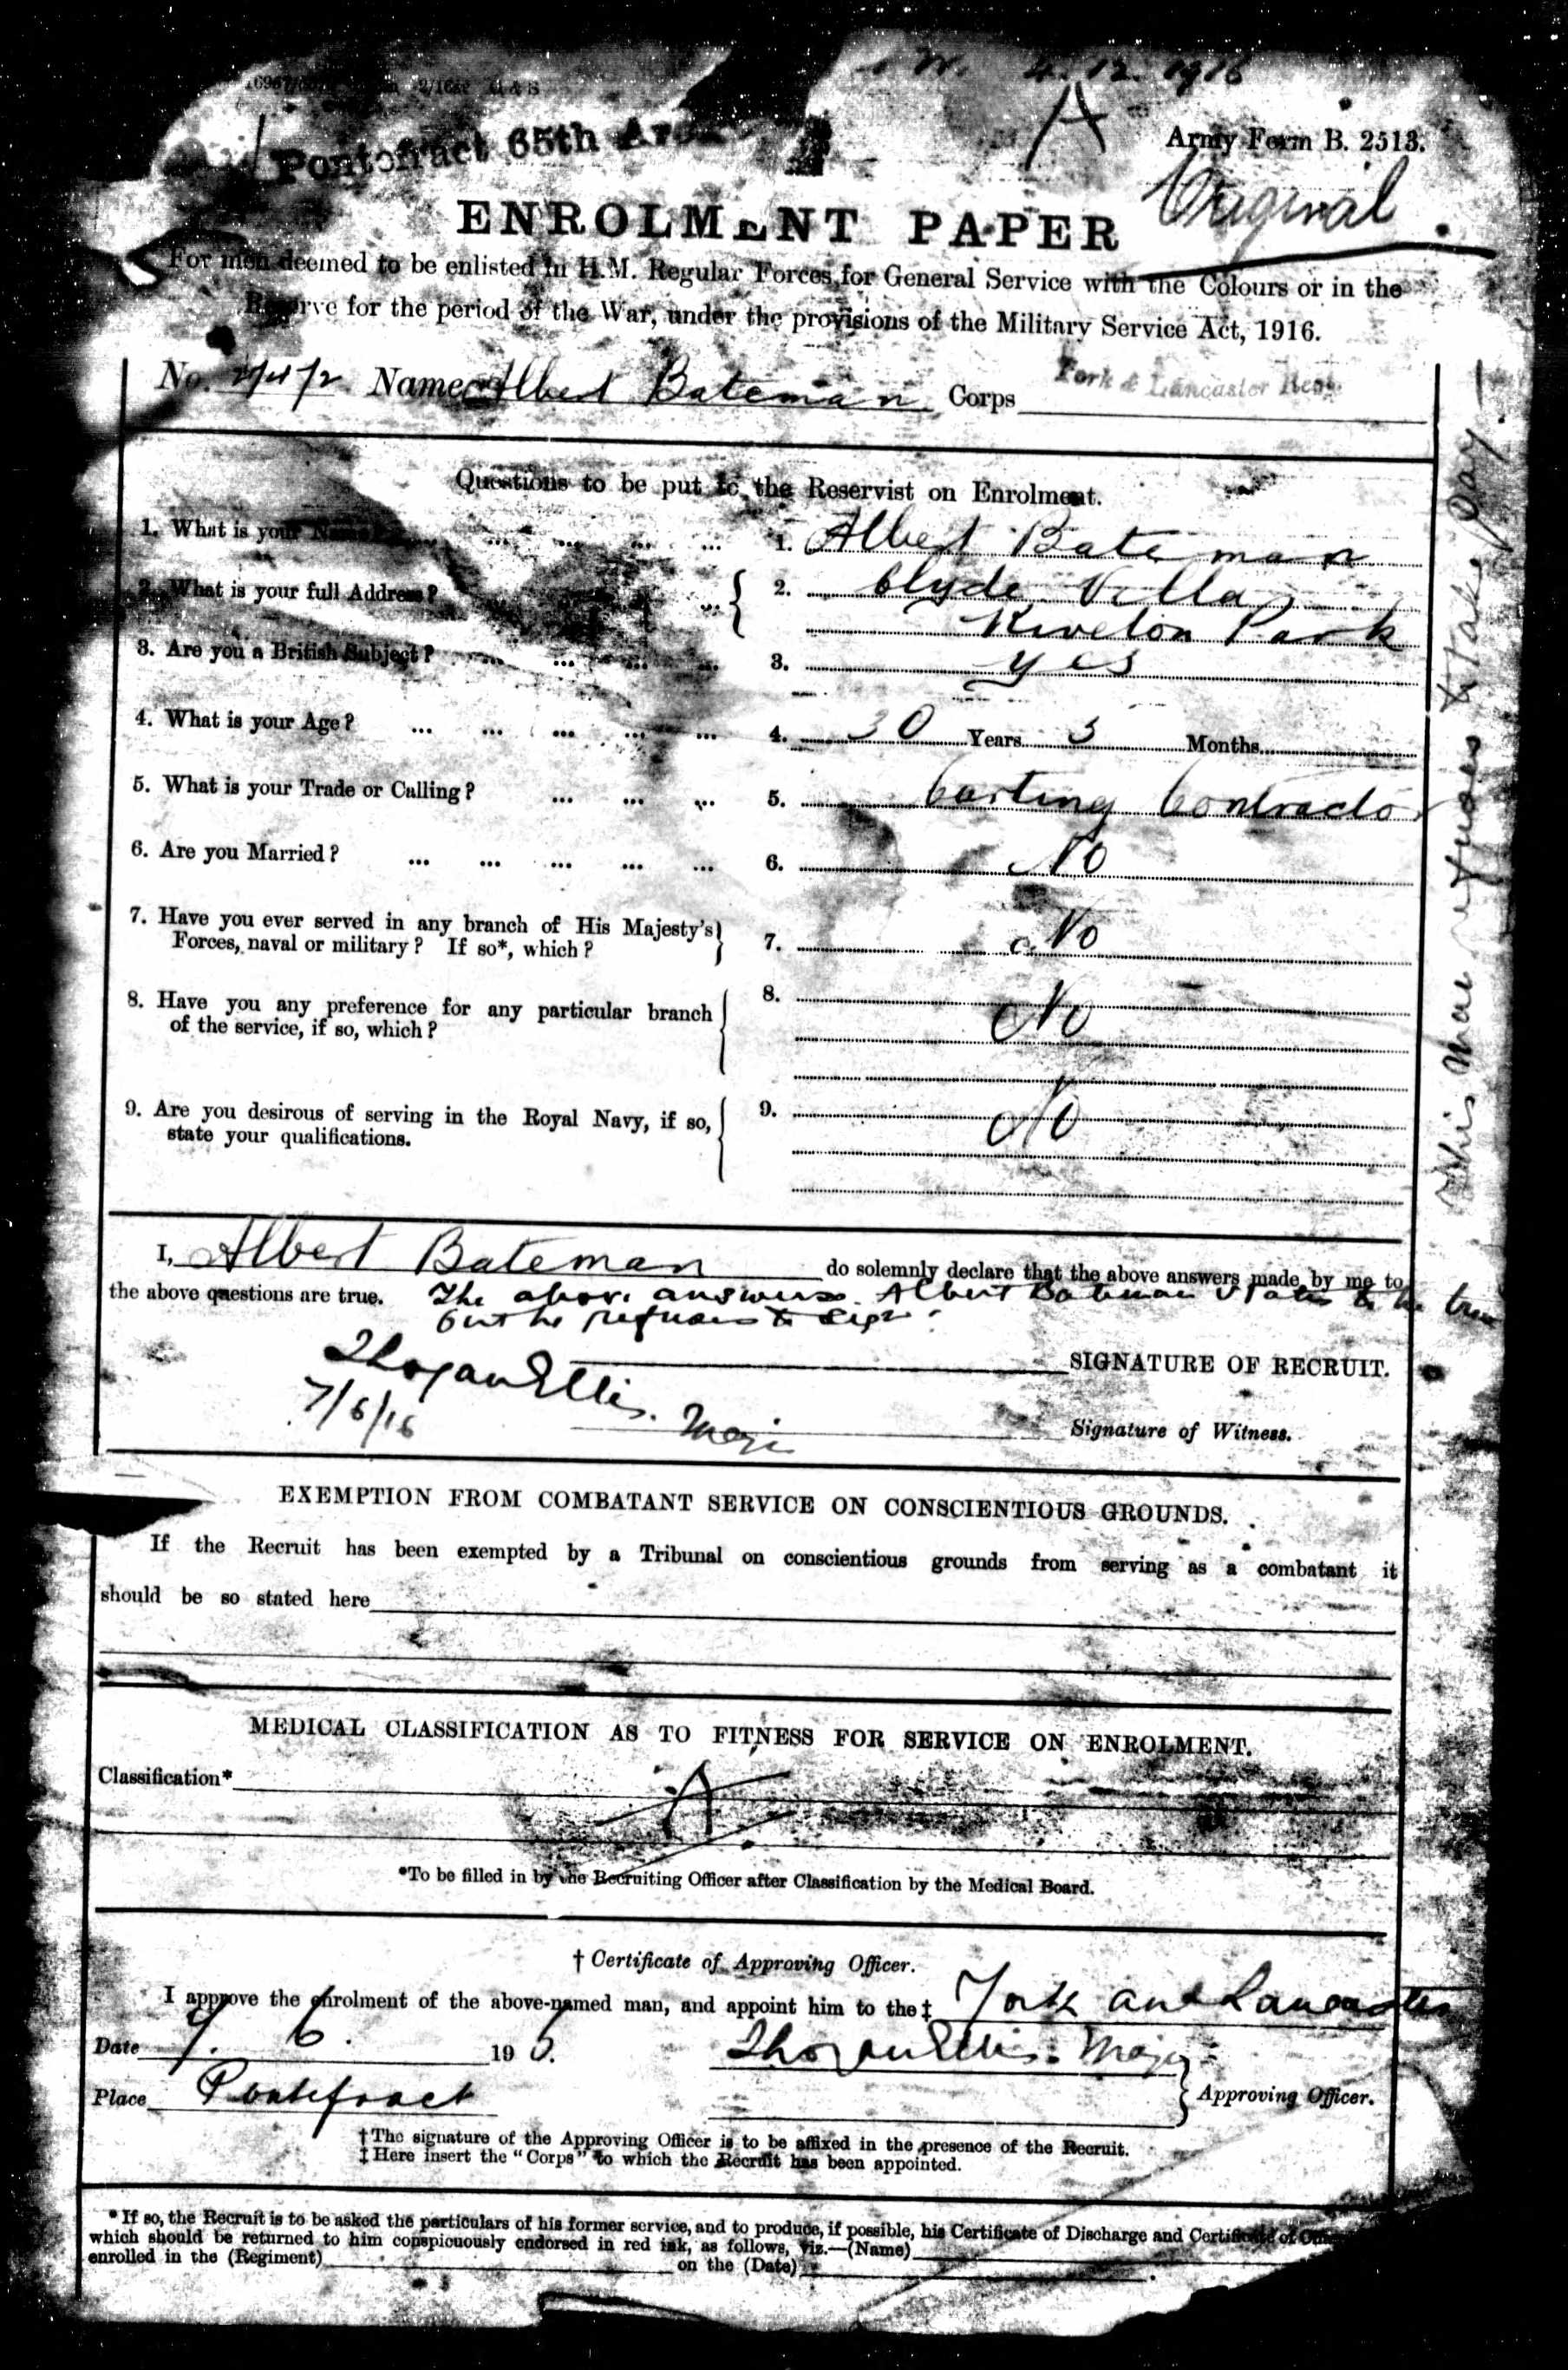 4.12.1916
A
Pontofract 65th
Army Form B. 2513.
Original
ENROLMENT PAPER
For men deemed to be enlisted in H.M. Regular Forces for General Service with the Colours or in the
Reserve for the period of the War, under the provisions of the Military Service Act, 1916.
No. Name Albert Bateman Corps York & Lancaster Regt.
Questions to be put to the Reservist on Enrolment.
1. What is your Name? ... ... ... ... 1. Albert Bateman
2. What is your full Address? ... 2. Clyde Villa
Kiveton Park
3. Are you a British Subject? ... ... ... ... 3. Yes
4. What is your Age? ... ... ... ... ... 4. 30 Years 5 Months
5. What is your Trade or Calling? ... ... ... 5. Carting Contractor
6. Are you Married? ... ... ... ... ... 6. No
7. Have you ever served in any branch of His Majesty's
Forces, naval or military? If so*, which? 7. No
8. Have you any preference for any particular branch
of the service, if so, which? 8. No
9. Are you desirous of serving in the Royal Navy, if so,
state your qualifications. 9. No
This man refuses to take pay.
I, Albert Bateman do solemnly declare that the above answers made by me to
the above questions are true. The above answers Albert Bateman states to be true
but he refuses to sign.
SIGNATURE OF RECRUIT.
Ellis. Major
7/6/16
Signature of Witness.
EXEMPTION FROM COMBATANT SERVICE ON CONSCIENTIOUS GROUNDS.
If the Recruit has been exempted by a Tribunal on conscientious grounds from serving as a combatant it
should be so stated here
MEDICAL CLASSIFICATION AS TO FITNESS FOR SERVICE ON ENROLMENT.
Classification* A
*To be filled in by the Recruiting Officer after Classification by the Medical Board.
† Certificate of Approving Officer.
I approve the enrolment of the above-named man, and appoint him to the‡ York and Lancaster
Date 7. 6. 19 Ellis. Major
Place Pontefract Approving Officer.
†The signature of the Approving Officer is to be affixed in the presence of the Recruit.
‡Here insert the "Corps" to which the Recruit has been appointed.
*If so, the Recruit is to be asked the particulars of his former service, and to produce, if possible, his Certificate of Discharge and Certificate of
which should be returned to him conspicuously endorsed in red ink, as follows, viz.—(Name)
enrolled in the (Regiment) on the (Date)